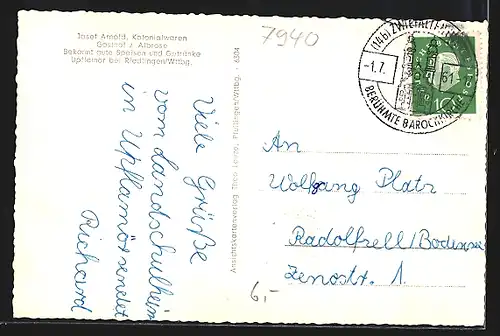 Josef Arnold, Kolonialwaren
Gasthof z. Albrose
Bekannt gute Speisen und Getränke
Upflamör bei Riedlingen/Wttbg.
7940
(14b) ZWIEFALTEN
-1.7.
61
BERÜHMTE BAROCKKIRCHE
10
Viele Grüße
vom Landschulheim
in Upflamör sendet
Richard
Ansichtskartenverlag Pfullingen/Wttbg. · 6504
An
Wolfgang Platz
Radolfzell/Bodensee
Zenostr. 1.
6,-